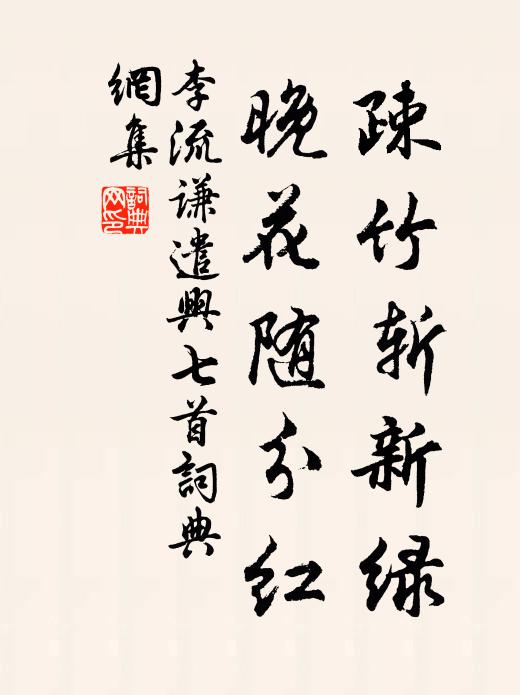 疎竹斩新绿
晚花随分红
李流谦遣興七首詞典
網集
詞典
网印